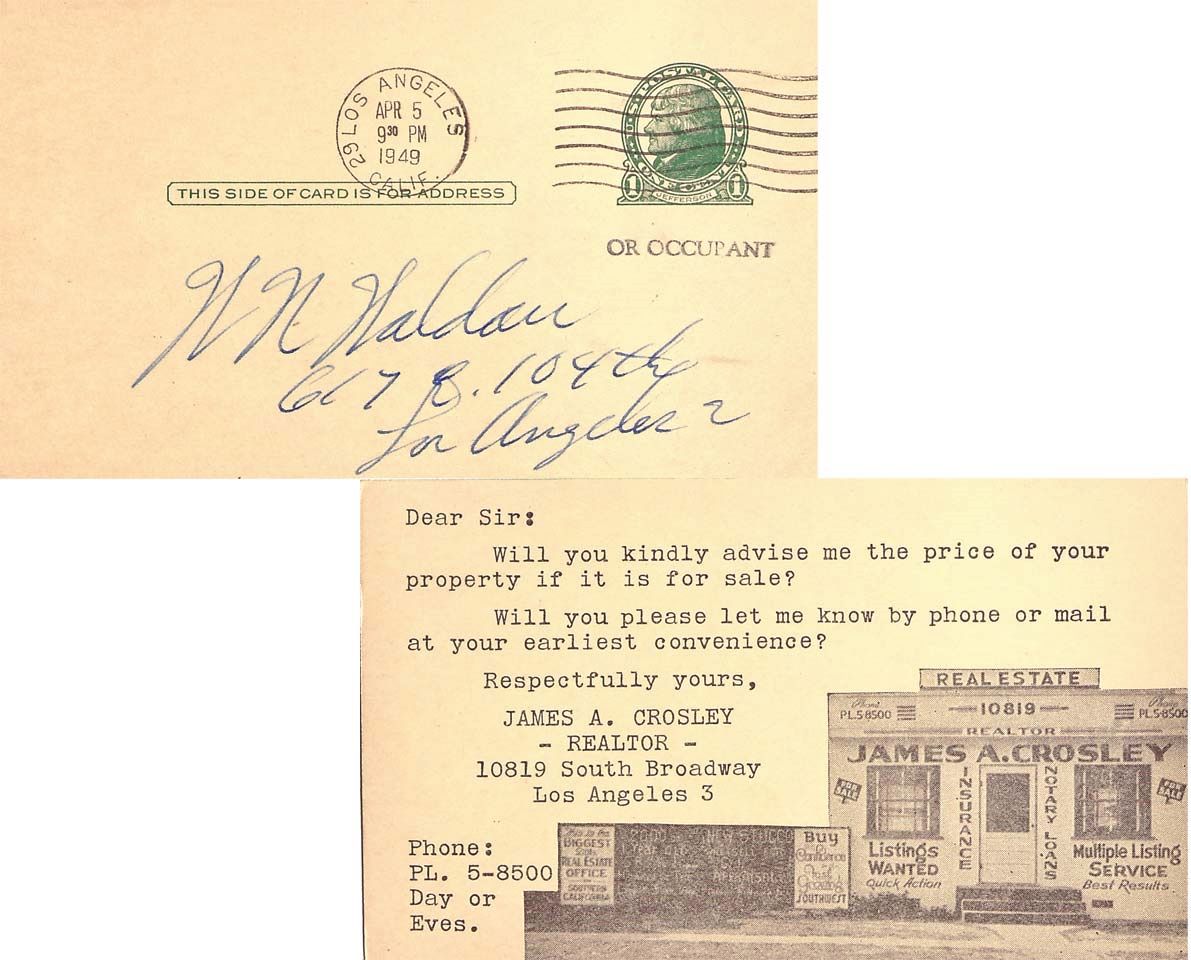 LOS ANGELES
APR 5
9³⁰ PM
1949
29 CALIF.
THIS SIDE OF CARD IS FOR ADDRESS
1 JEFFERSON 1
OR OCCUPANT
W N Waldau
617 E. 104th
Los Angeles 2
Dear Sir:
Will you kindly advise me the price of your
property if it is for sale?
Will you please let me know by phone or mail
at your earliest convenience?
Respectfully yours,
JAMES A. CROSLEY
- REALTOR -
10819 South Broadway
Los Angeles 3
Phone:
PL. 5-8500
Day or
Eves.
REAL ESTATE
Phone
PL.5-8500
10819
Phone
PL.5-8500
REALTOR
JAMES A. CROSLEY
FOR SALE
INSURANCE
NOTARY LOANS
FOR SALE
Listings
WANTED
Quick Action
Multiple Listing
SERVICE
Best Results
BIGGEST
REAL ESTATE
OFFICE
SOUTHERN
CALIFORNIA
NEW STUCCO
Buy
Confidence
SOUTHWEST